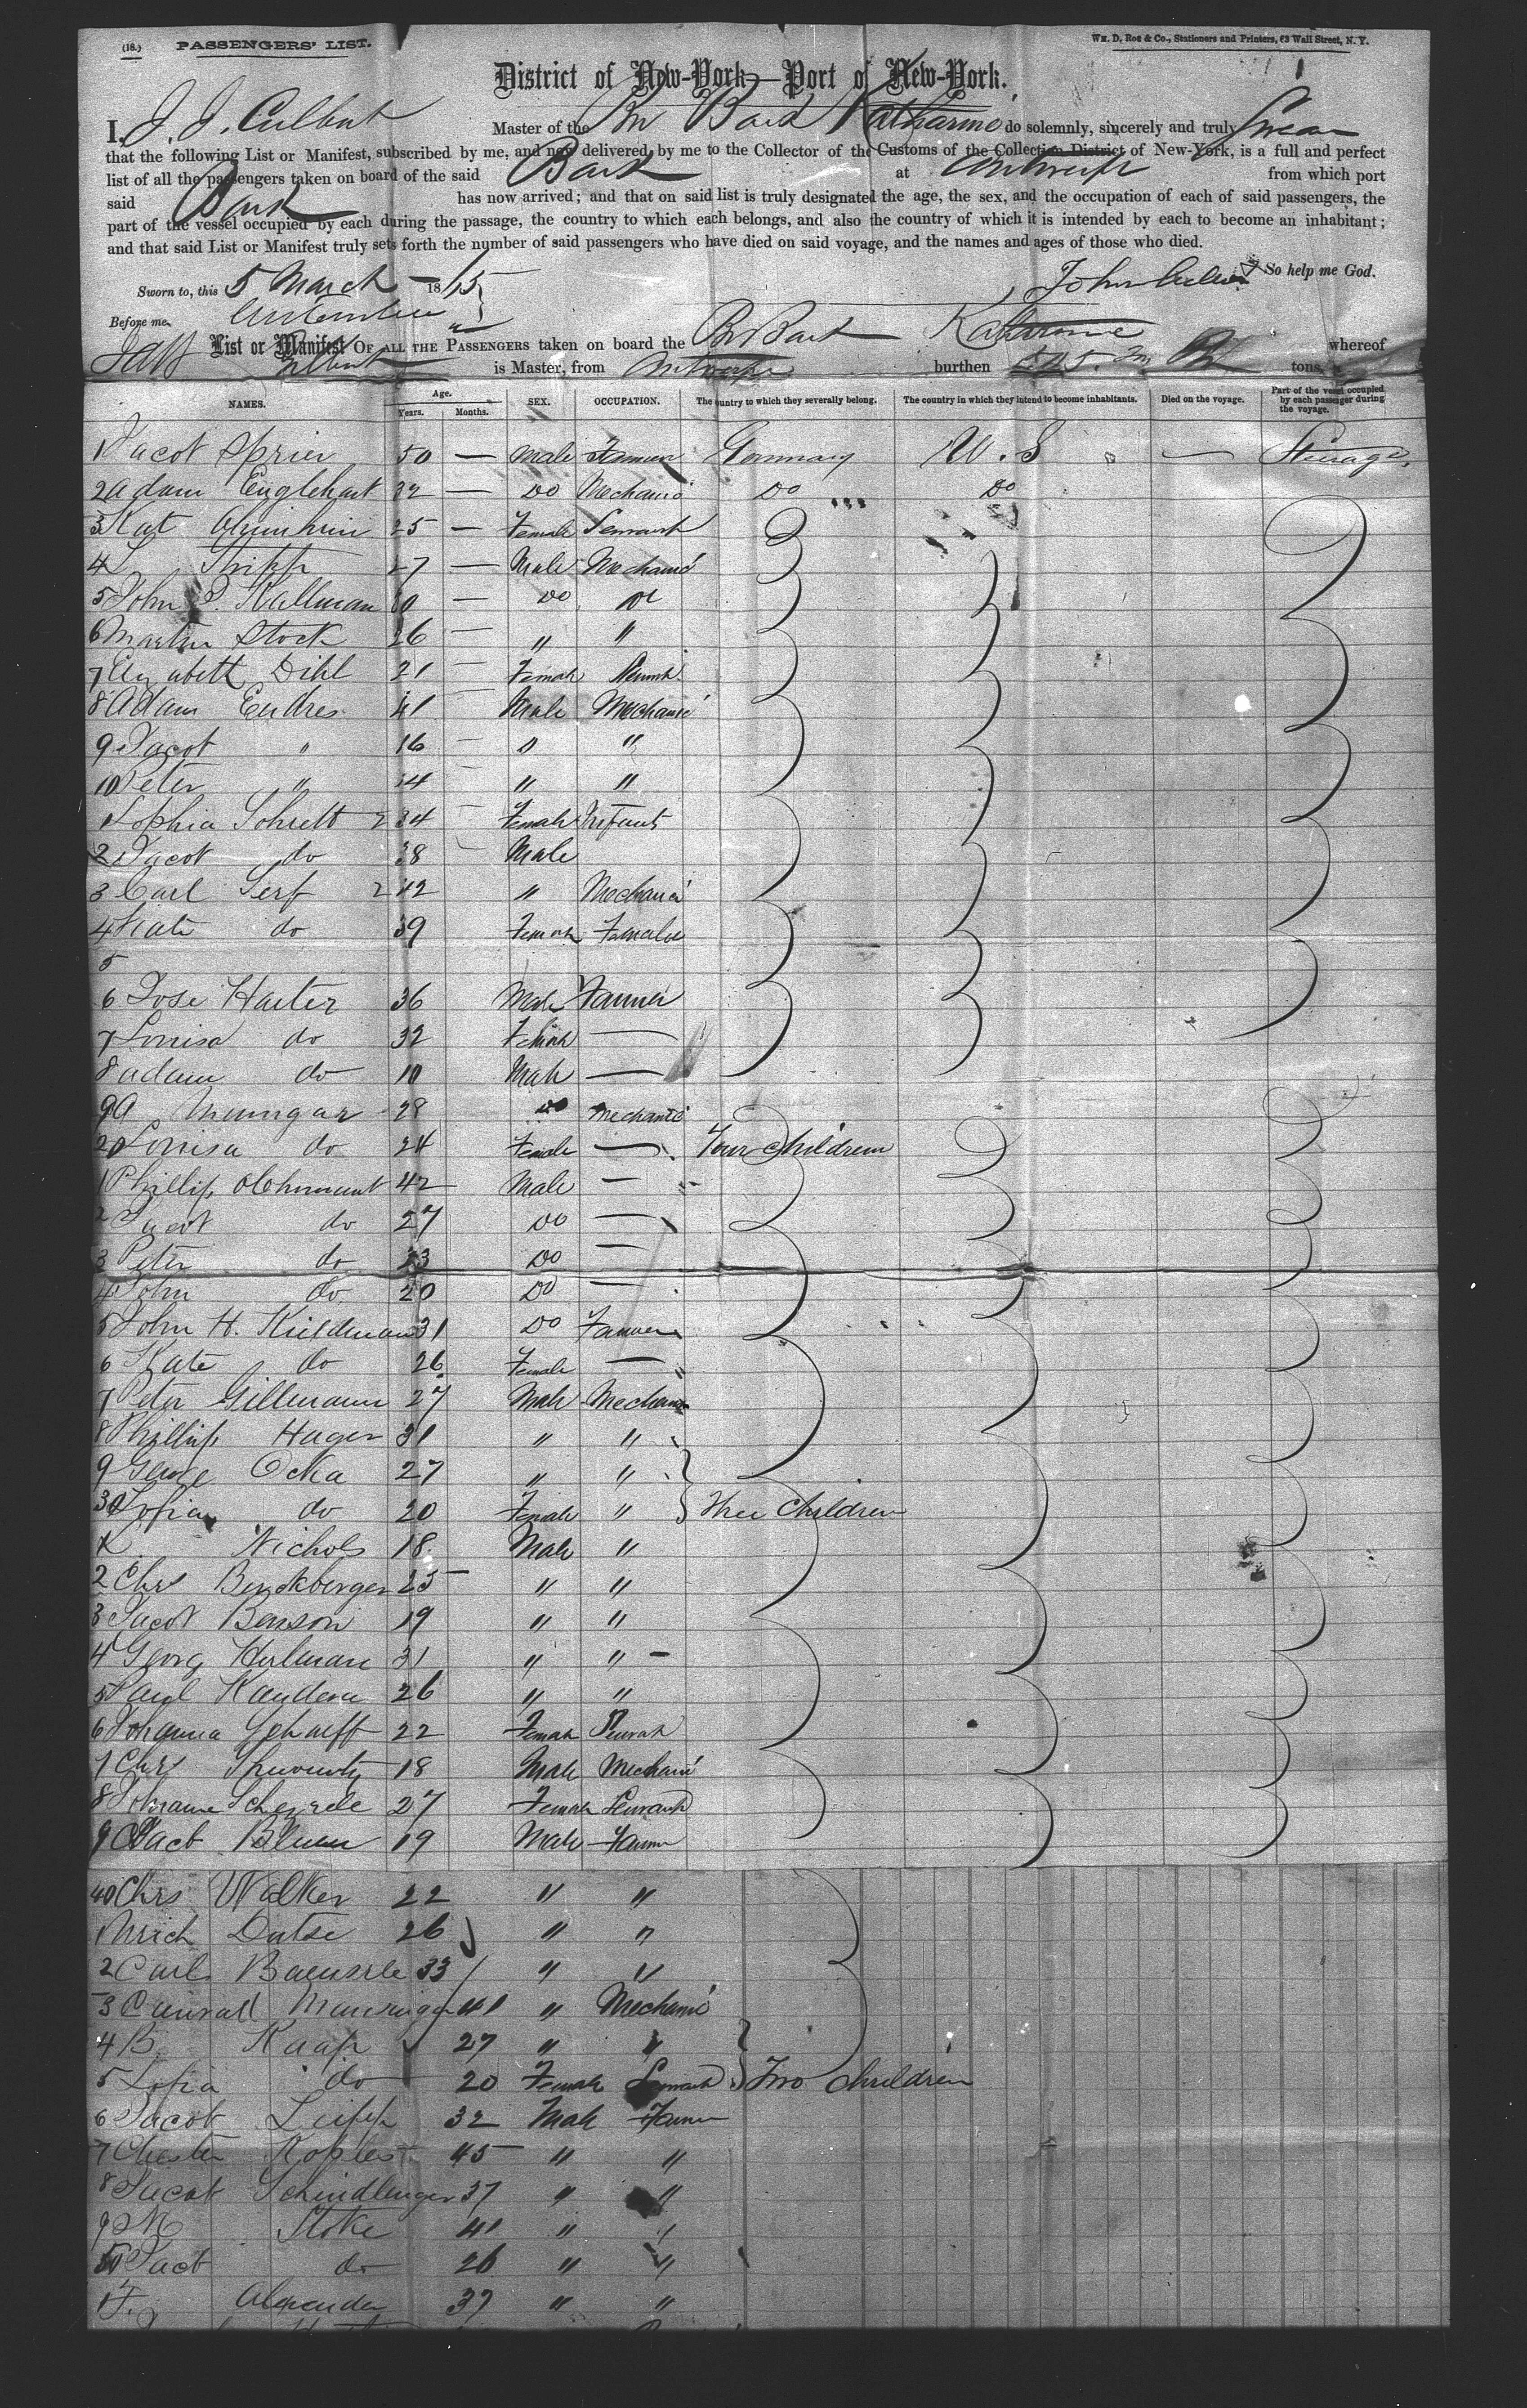 (18.) PASSENGERS' LIST. Wm. D. Roe & Co., Stationers and Printers, 63 Wall Street, N. Y.
District of New-York—Port of New-York.
I, J. J. Culbert Master of the Br Bark Katharine do solemnly, sincerely and truly Swear
that the following List or Manifest, subscribed by me, and now delivered by me to the Collector of the Customs of the Collection District of New-York, is a full and perfect
list of all the passengers taken on board of the said Bark at Antwerp from which port
said Bark has now arrived; and that on said list is truly designated the age, the sex, and the occupation of each of said passengers, the
part of the vessel occupied by each during the passage, the country to which each belongs, and also the country of which it is intended by each to become an inhabitant;
and that said List or Manifest truly sets forth the number of said passengers who have died on said voyage, and the names and ages of those who died.
So help me God.
Sworn to, this 5 March 18
Before me, John
List or Manifest OF ALL THE PASSENGERS taken on board the Br Bark Katharine whereof
is Master, from Antwerp burthen tons,
NAMES. Age. Years. Months. SEX. OCCUPATION. The country to which they severally belong. The country in which they intend to become inhabitants. Died on the voyage. Part of the vessel occupied by each passenger during the voyage.
1 Jacob Sprier 50 — Male Farmer Germany U. S — Steerage
2 Adam Englehart 32 — Do Mechanic Do Do
3 Kat 25 — Female Servant
4 L Tripp 27 — Male Mechanic
5 John P. Kallman — Do Do
6 Martin Stock 26 — " "
7 Elizabeth Dihl 21 — Female Servant
8 Adam Endres 41 — Male Mechanic
9 Jacob " 16 — " "
10 Peter " " "
1 Sophia 34 Female Infants
2 Jacob do 38 Male
3 Carl Serf 2 42 " Mechanic
4 Kate do 39 Female Female
5
6 Jose Harter 36 Male Farmer
7 Louisa do 32 Female —
8 Adam do 10 Male —
9 A Mumgar 28 Do Mechanic
20 Louisa do 24 Female — Four Children
1 Phillip 42 Male —
2 Jacob do 27 Do —
3 Peter do 23 Do —
4 John do 20 Do —
5 John H. Kuldman 31 Do Farmer
6 Kate do 26 Female —
7 Peter Gillmann 27 Male Mechanic
8 Phillip Hager 31 " "
9 George Ocka 27 " "
30 Sofia do 20 Female " Three Children
K Nichols 18 Male "
2 Chrs Benckberger 25 " "
3 Jacob Benson 19 " "
4 Georg Hulman 31 " " –
5 Paul Kandera 26 " "
6 Johanna Schaeff 22 Female Servant
7 Chrs 18 Male Mechanic
8 27 Female Servant
9 Jacb Blum 19 Male Farmer
40 Chrs Walker 22 " "
1 Ulrich Dutse 26 " "
2 Carl Baeusrle 33 " "
3 Conrad 41 " Mechanic
4 B. Kaap 27 " "
5 Sofia do 20 Female Servant Two Children
6 Jacob Leipp 32 Male Farmer
7 Chester Koples 45 " "
8 Jacob Schindlenger 37 " "
9 M Stoke 41 " "
50 Jacb do 26 " "
1 F. Alexander 37 " "